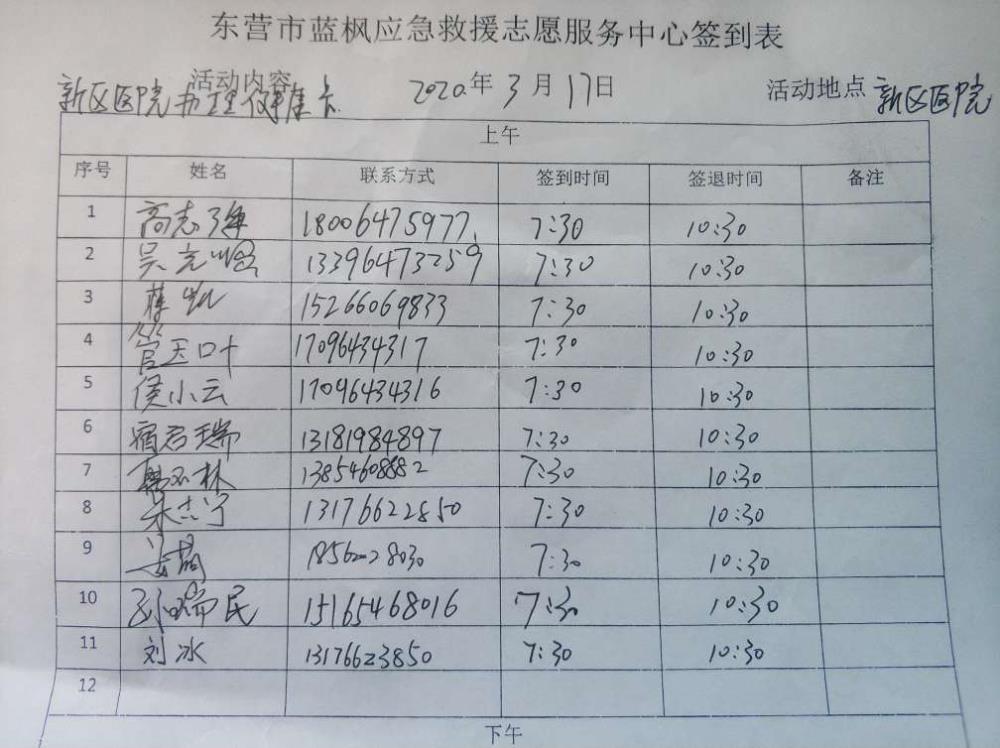 东营市蓝枫应急救援志愿服务中心签到表
活动内容 2020年3月17日 活动地点 新区医院
新区医院办理健康卡
上午
序号 姓名 联系方式 签到时间 签退时间 备注
1 高志强 18006475977 7:30 10:30
2 吴 13396473259 7:30 10:30
3 蒋凯 15266069833 7:30 10:30
4 管玉叶 17096434317 7:30 10:30
5 侯小云 17096434316 7:30 10:30
6 宿君瑞 13181984897 7:30 10:30
7 林 13854608882 7:30 10:30
8 朱志 13176622850 7:30 10:30
9 7:30 10:30
10 孙瑞民 15165468016 7:30 10:30
11 刘冰 13176623850 7:30 10:30
12
下午